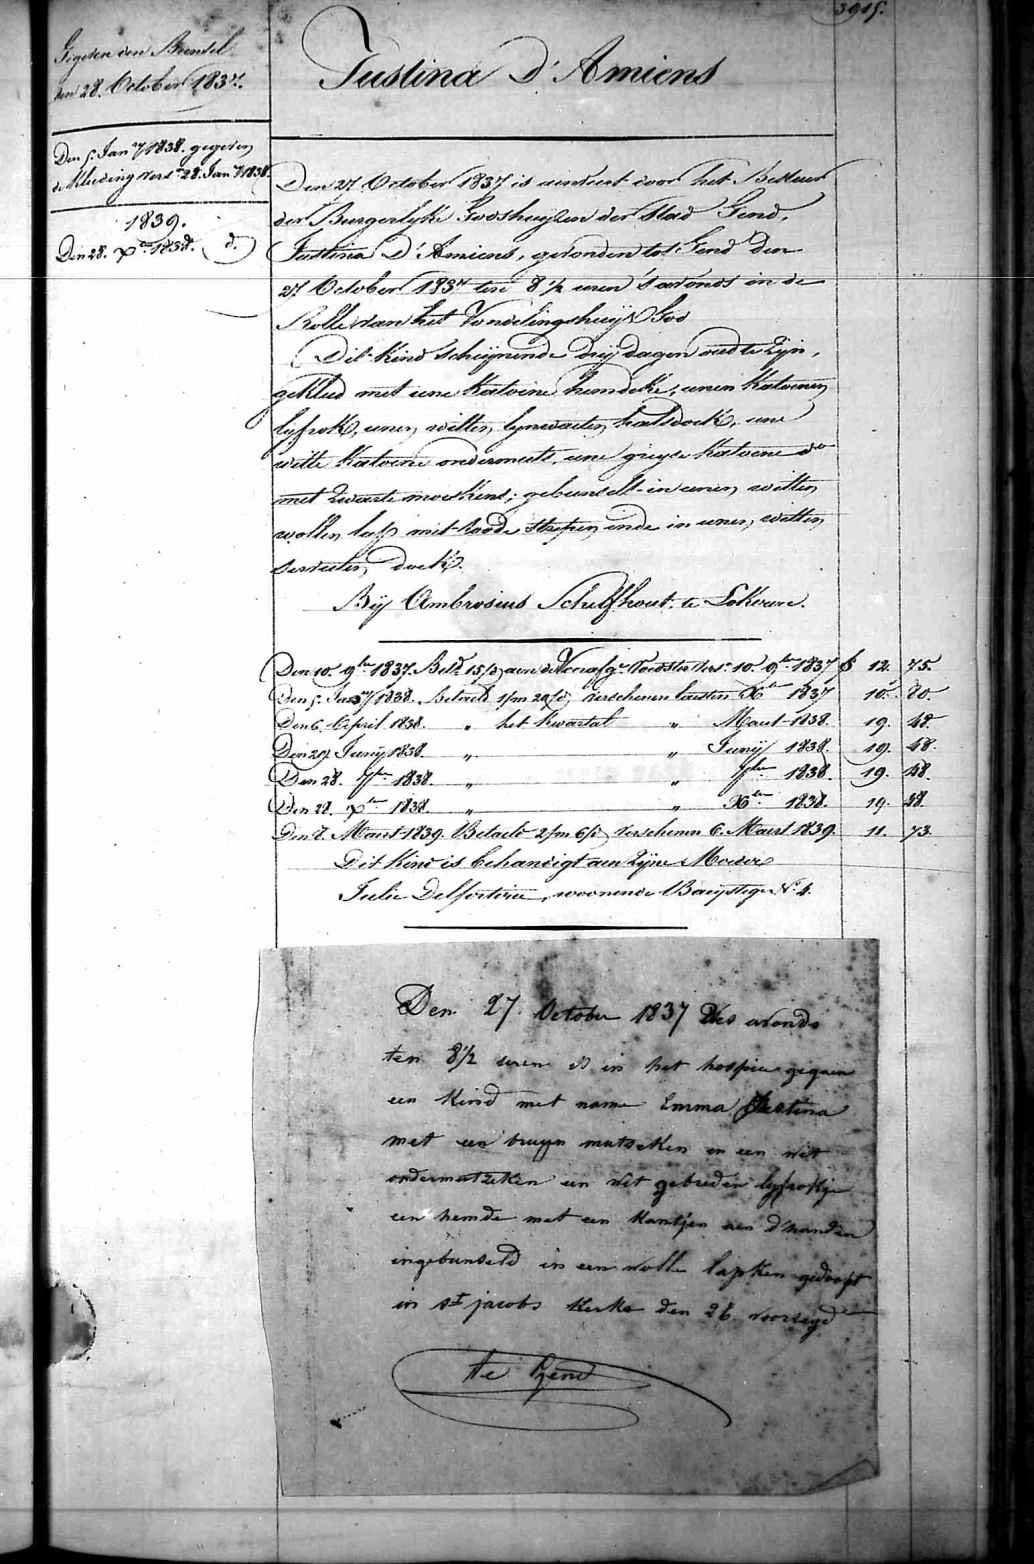 3915.
Justina D'Amiens
Gegeven den Bunsel
den 28. October 1837.
Den 5. Jan.ry 1838. gegeven
de Kleeding vers.n 28. Jan.ry 1838.
1839.
Den 28. X.bre 1838. d.
Den 27 October 1837 is aenveert door het Bestuur
der Burgerlyke Godshuyzen der Stad Gend,
Justina D'Amiens, gevonden tot Gend den
27 October 1837 ten 8 1/2 uren 's avonds in de
Rolle van het Vondelingshuys God
Dit Kind scheynende dry dagen oud te zyn,
gekleed met eene Katoene hemdeke, eenen Katoenen
lyfrok, eenen witten lynwaeten halsdoek, eene
witte Katoene ondermuts, eene gryse Katoene d.to
met zwarte moeskens, gebunselt in eenen witten
wollen lap met roode strepen ende in eenen witten
servetten doek.
Bij Ambrosius Schelfhout te Lokeren.
Den 10. 9.bre 1837. Bet.d 15/3 aen de vers. 10. 9.bre 1837 12. 75.
Den 5. Jan.ry 1838. Betaeld 1/m 20/d verschenen laesten X.bre 1837 10. 20.
Den 6. April 1838. " het Kwartael " Maert 1838. 19. 48.
Den 29. Junij 1838. " " Junij 1838. 19. 48.
Den 28. 7.bre 1838. " " 7.bre 1838. 19. 48.
Den 28. X.bre 1838. " " X.bre 1838. 19. 48.
Den 8. Maert 1839. Betaeld 2/m 6/d verschenen 6. Maert 1839. 11. 73.
Dit Kind is behandigt aen zyne Moeder
Julie Delfortrie, woonende Baeystege N.o 4.
Den 27 October 1837 des avonds
ten 8 1/2 uren is in het hospice gegaen
een kind met name Emma Justina
met een bruyn mutseken en een wit
ondermutseken een wit gebreden lyfrokje
een hemde met een kantjen aen d'handen
ingebunseld in een wolle lapken gedoopt
in st jacobs kerke den 26 voorsegd
te Gend